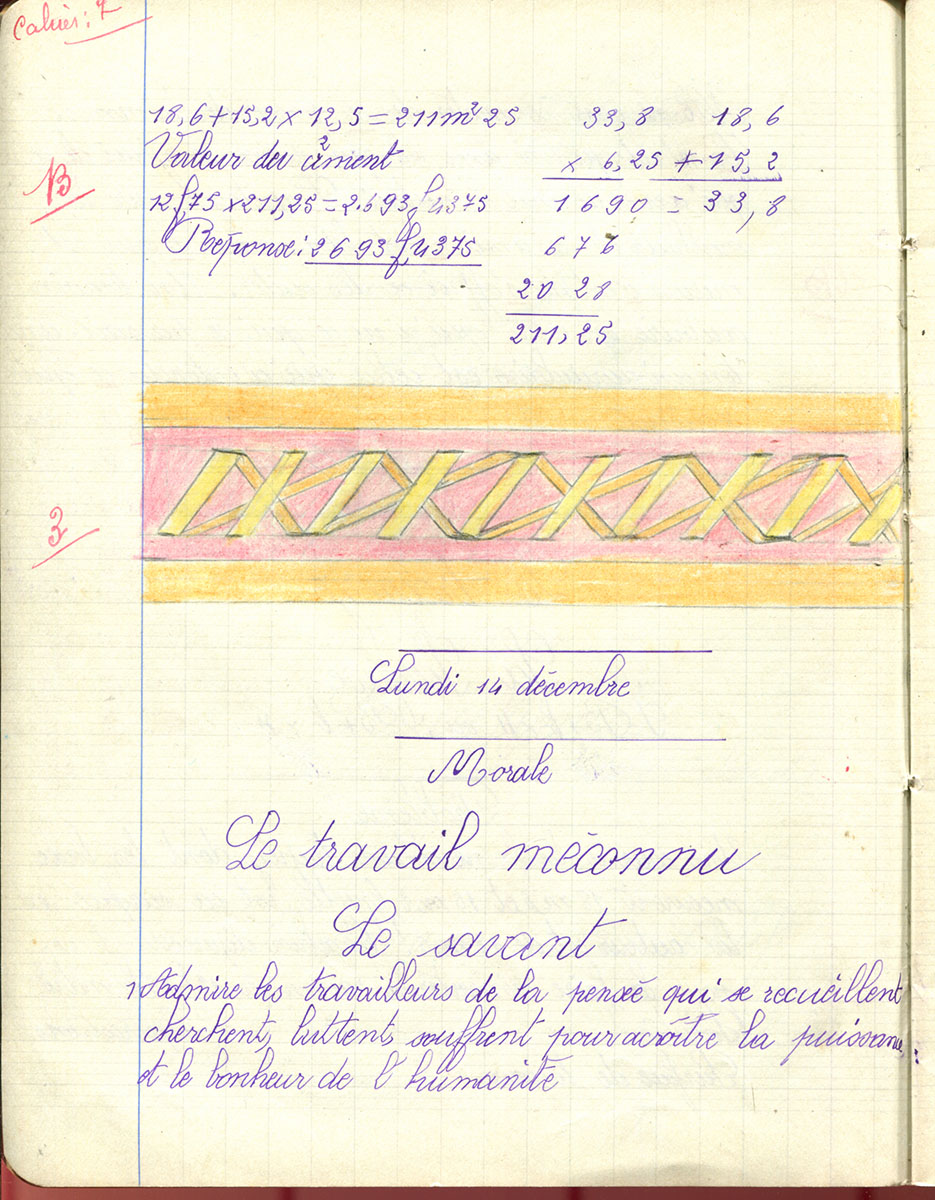 Cahier: 7
18,6 + 15,2 x 12,5 = 211m² 25
33,8 18,6
Valeur du ciment
2
x 6,25 + 15,2
B
12f,75 x 211,25 = 2.693f,4375
1690 = 33,8
Réponse: 2693f,4375
676
2028
211,25
3
Lundi 14 décembre
Morale
Le travail méconnu
Le savant
1 Admire les travailleurs de la pensée qui se recuéillent
cherchent, luttent, souffrent pour acroître la puissance
et le bonheur de l'humanité